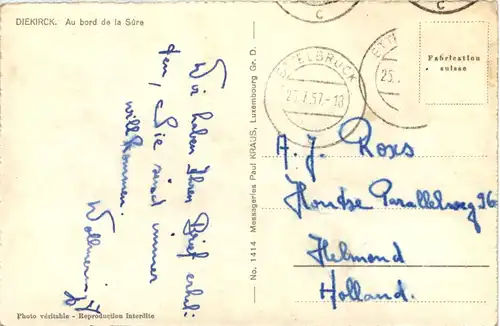 DIEKIRCK. Au bord de la Sûre
Wir haben Ihren Brief erhal-
ten, Sie sind immer
willkommen.
Photo véritable - Reproduction interdite
No. 1414 Messageries Paul KRAUS, Luxembourg Gr. D.
C
C
ETTELBRUCK
25.7.57-18
ETT
25.
Fabrication
suisse
A. J. Roxs
Parallelweg 96
Helmond
Holland.